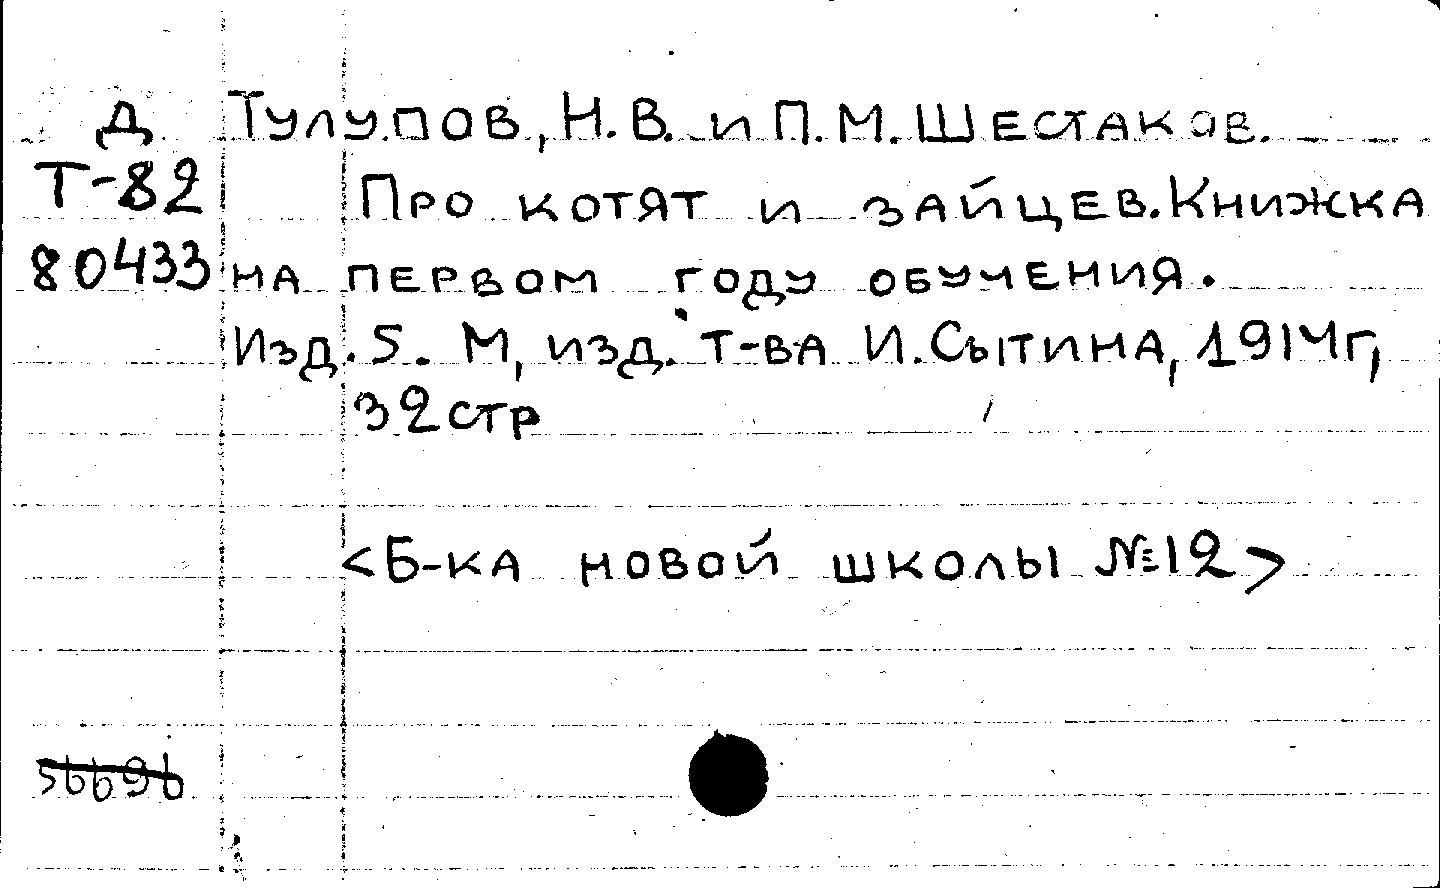 Д Тулупов, Н.В. и П.М. Шестаков.
Т-82 Про котят и зайцев. Книжка
80433 на первом году обучения.
Изд. 5. М, изд. т-ва И. Сытина, 1914г,
32стр
<Б-ка новой школы №12>
56696